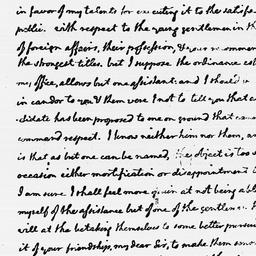 in favor of my talents for executing it to the satisfa
public. with respect to the young gentlemen in th
of foreign affairs, their profession, & your recommen
the strongest titles. but I suppose the ordinance est
my office, allows but one assistant: and I should
in candor to you & them were I not to tell you that a
didate has been proposed to me on ground that
command respect. I know neither him nor them, an
is that as but one can be named, the object is too
occasion either mortification or disappointment t
I am sure I shall feel more pain at not being able
myself of the assistance but of one of the gentlem
will at the betaking themselves to some better pursui
it of your friendship, my dear Sir, to make them